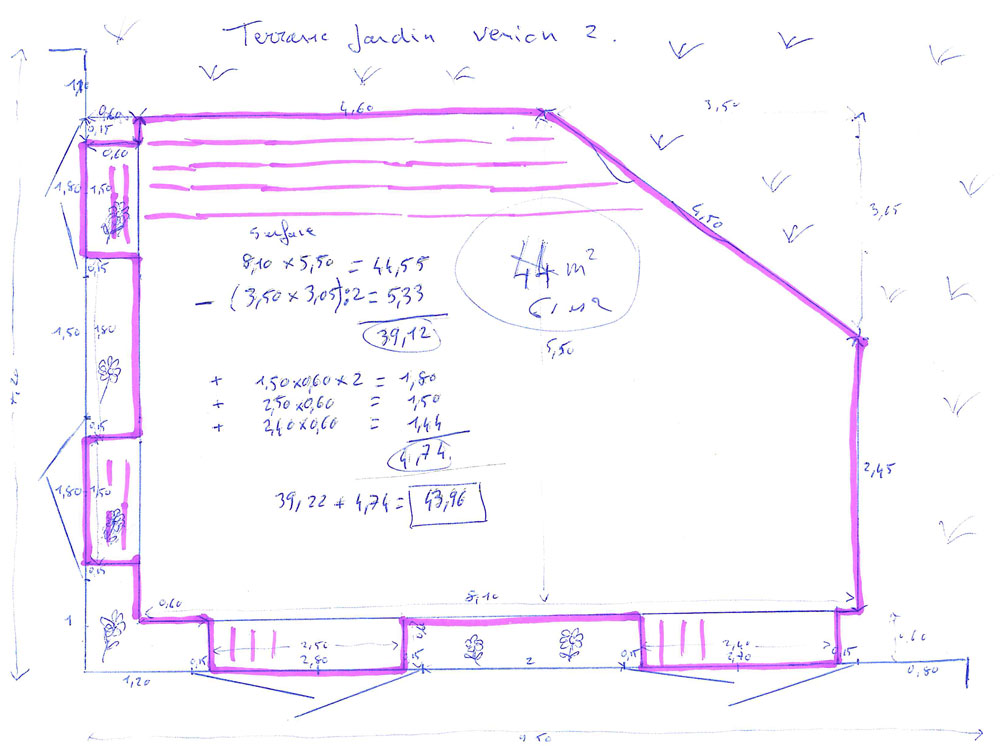 Terrasse Jardin version 2.
1,10
0,60
4,60
3,50
0,15
0,60
1,80
1,50
3,05
4,50
Surface
8,10 x 5,50 = 44,55
- (3,50 x 3,05):2 = 5,33
39,12
44 m²
0,15
1,50
1,80
5,50
+ 1,50 x 0,60 x 2 = 1,80
+ 2,50 x 0,60 = 1,50
+ 2,40 x 0,60 = 1,44
4,74
0,15
1,80
1,50
2,45
39,22 + 4,74 = 43,96
0,15
0,60
8,10
1
0,60
2,50
2,40
0,15
2,80
2
0,15
2,70
0,15
1,20
0,80
9,50